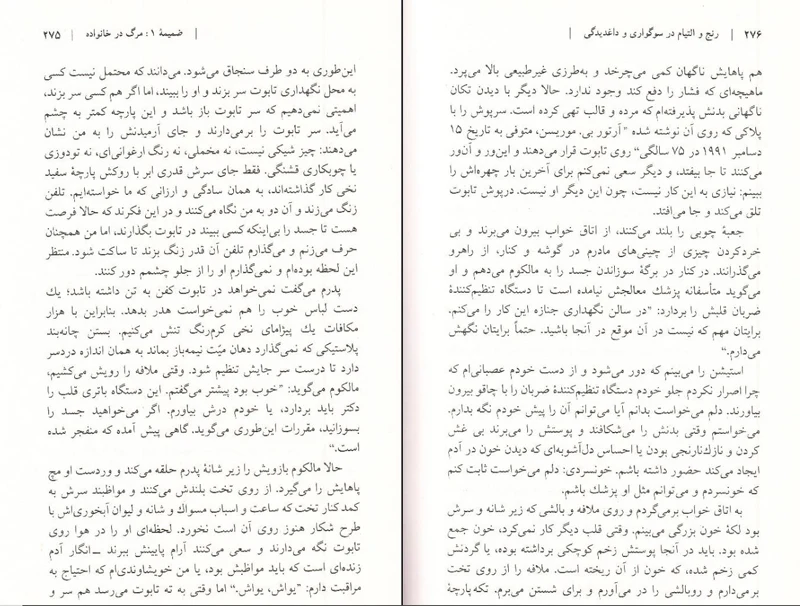 | ضمیمهٔ ۱: مرگ در خانواده | ۲۷۵
این‌طوری به دو طرف سنجاق می‌شود. می‌دانند که محتمل نیست کسی
به محل نگهداری تابوت سر بزند و او را ببیند، اما اگر هم کسی سر بزند،
اهمیتی نمی‌دهیم که سر تابوت باز باشد و این پارچه کمتر به چشم
می‌آید. سر تابوت را برمی‌دارند و جای آرمیدنش را به من نشان
می‌دهند: چیز شیکی نیست، نه مخملی، نه رنگ ارغوانی‌ای، نه تودوزی
یا چوبکاری قشنگی. فقط جای سرش قدری ابر با روکش پارچهٔ سفید
نخی کار گذاشته‌اند، به همان سادگی و ارزانی که ما خواسته‌ایم. تلفن
زنگ می‌زند و آن دو به من نگاه می‌کنند و در این فکرند که حالا فرصت
هست تا جسد را بی‌اینکه کسی ببیند در تابوت بگذارند، اما من همچنان
حرف می‌زنم و می‌گذارم تلفن آن قدر زنگ بزند تا ساکت شود. منتظر
این لحظه بوده‌ام و نمی‌گذارم او را از جلو چشمم دور کنند.
پدرم می‌گفت نمی‌خواهد در تابوت کفن به تن داشته باشد؛ یك
دست لباس خوب را هم نمی‌خواست هدر بدهد. بنابراین با هزار
مکافات یك پیژامای نخی کرم‌رنگ تنش می‌کنیم. بستن چانه‌بند
پلاستیکی که نمی‌گذارد دهان میّت نیمه‌باز بماند به همان اندازه دردسر
دارد تا درست سر جایش تنظیم شود. وقتی ملافه را رویش می‌کشیم،
مالکوم می‌گوید: ”خوب بود پیشتر می‌گفتم. این دستگاه باتری قلب را
دکتر باید بردارد، یا خودم درش بیاورم. اگر می‌خواهید جسد را
بسوزانید، مقررات این‌طوری می‌گوید. گاهی پیش آمده که منفجر شده
است.“
حالا مالکوم بازویش را زیر شانهٔ پدرم حلقه می‌کند و وردست او مچ
پاهایش را می‌گیرد. از روی تخت بلندش می‌کنند و مواظبند سرش به
کمد کنار تخت که ساعت و اسباب مسواك و شانه و لیوان آبخوری‌اش با
طرح شکار هنوز روی آن است نخورد. لحظه‌ای او را در هوا روی
تابوت نگه می‌دارند و سعی می‌کنند آرام پایینش ببرند ــ انگار آدم
زنده‌ای است که باید مواظبش بود، یا من خویشاوندی‌ام که احتیاج به
مراقبت دارم: ”یواش، یواش.“ اما وقتی به ته تابوت می‌رسد هم سر و
۲۷۶ | رنج و التیام در سوگواری و داغدیدگی |
هم پاهایش ناگهان کمی می‌چرخد و به‌طرزی غیرطبیعی بالا می‌پرد.
ماهیچه‌ای که فشار را دفع کند وجود ندارد. حالا دیگر با دیدن تکان
ناگهانی بدنش پذیرفته‌ام که مرده و قالب تهی کرده است. سرپوش را با
پلاکی که روی آن نوشته شده ”آرتور بی. موریسن، متوفی به تاریخ ۱۵
دسامبر ۱۹۹۱ در ۷۵ سالگی“ روی تابوت قرار می‌دهند و این‌ور و آن‌ور
می‌کنند تا جا بیفتد، و دیگر سعی نمی‌کنم برای آخرین بار چهره‌اش را
ببینم: نیازی به این کار نیست، چون این دیگر او نیست. درپوش تابوت
تلق می‌کند و جا می‌افتد.
جعبهٔ چوبی را بلند می‌کنند، از اتاق خواب بیرون می‌برند و بی
خردکردن چیزی از چینی‌های مادرم در گوشه و کنار، از راهرو
می‌گذرانند. در کنار در برگهٔ سوزاندن جسد را به مالکوم می‌دهم و او
می‌گوید متأسفانه پزشك معالجش نیامده است تا دستگاه تنظیم‌کنندهٔ
ضربان قلبش را بردارد: ”در سالن نگهداری جنازه این کار را می‌کنم.
برایتان مهم که نیست در آن موقع در آنجا باشید. حتماً برایتان نگهش
می‌دارم.“
استیشن را می‌بینم که دور می‌شود و از دست خودم عصبانی‌ام که
چرا اصرار نکردم جلو خودم دستگاه تنظیم‌کنندهٔ ضربان را با چاقو بیرون
بیاورند. دلم می‌خواست بدانم آیا می‌توانم آن را پیش خودم نگه بدارم.
می‌خواستم وقتی بدنش را می‌شکافند و پوستش را می‌برند بی غش
کردن و نازك‌نارنجی بودن یا احساس دل‌آشوبه‌ای که دیدن خون در آدم
ایجاد می‌کند حضور داشته باشم. خونسردی: دلم می‌خواست ثابت کنم
که خونسردم و می‌توانم مثل او پزشك باشم.
به اتاق خواب برمی‌گردم و روی ملافه و بالشی که زیر شانه و سرش
بود لکهٔ خون بزرگی می‌بینم. وقتی قلب دیگر کار نمی‌کرد، خون جمع
شده بود. باید در آنجا پوستش زخم کوچکی برداشته بوده، یا گردنش
کمی زخم شده، که خون از آن ریخته است. ملافه را از روی تخت
برمی‌دارم و روبالشی را در می‌آورم و برای شستن می‌برم. تکه پارچهٔ